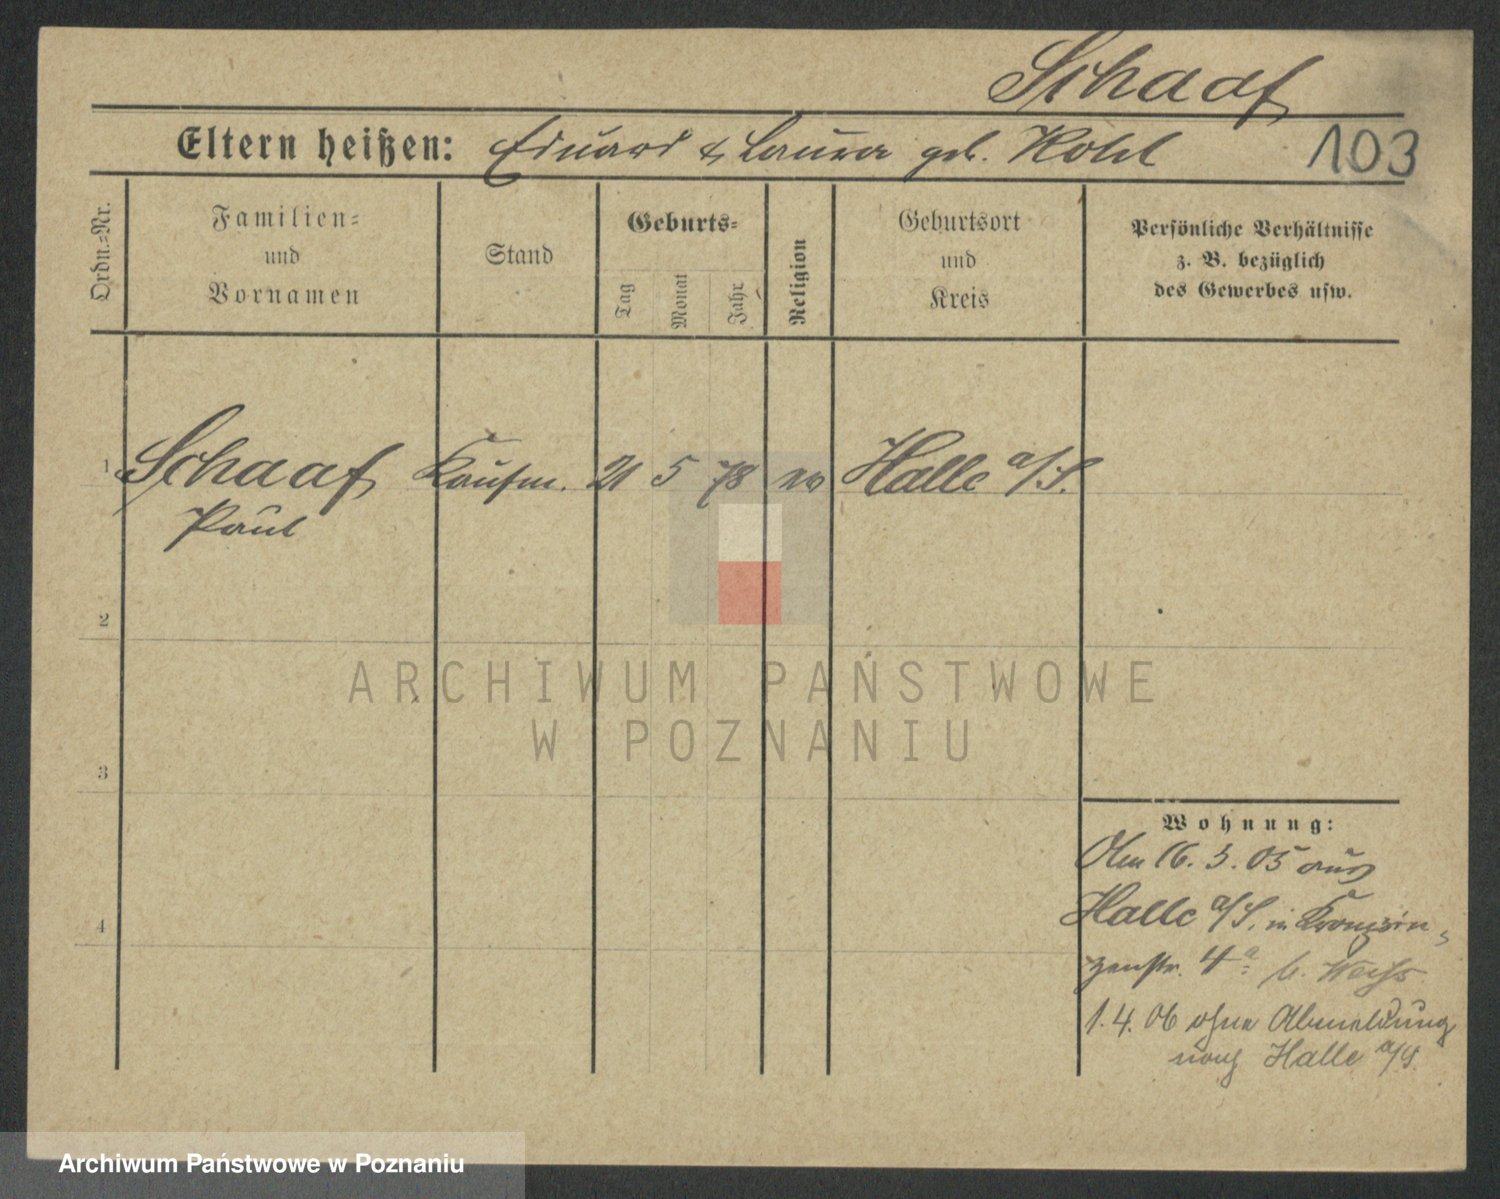 Schaaf
Eltern heißen: Eduard & Laura geb. Kohl
103
Ordn.=Nr.
Familien=
und
Vornamen
Stand
Geburts=
Tag
Monat
Jahr
Religion
Geburtsort
und
Kreis
Persönliche Verhältnisse
z. B. bezüglich
des Gewerbes usw.
1 Schaaf Kaufm. 21 5 78 ev Halle a/S.
Paul
2
ARCHIWUM PAŃSTWOWE
W POZNANIU
3
Wohnung:
Am 16. 3. 05 aus
Halle a/S. in Kronprin=
zenstr. 4a b. Weiss
4
1. 4. 06 ohne Abmeldung
nach Halle a/S.
Archiwum Państwowe w Poznaniu